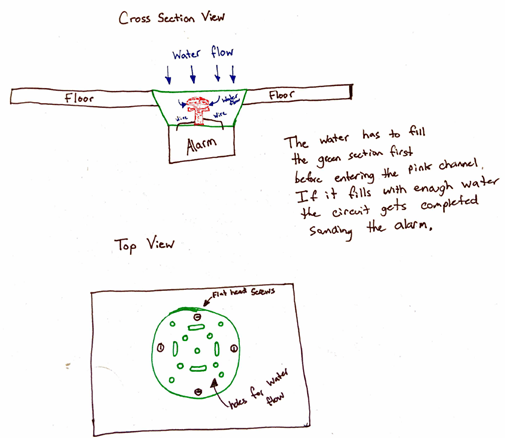 Cross Section View
Water flow
Floor
Floor
Water
flow
Wire
Wire
Alarm
The water has to fill
the green section first
before entering the pink channel.
If it fills with enough water
the circuit gets completed
sounding the alarm.
Top View
Flat head Screws
holes for water
flow